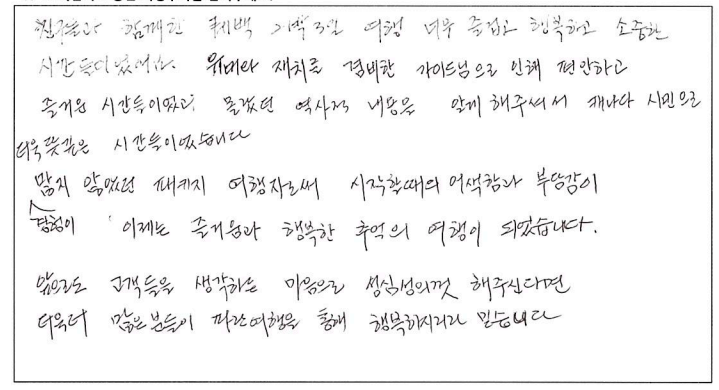 친구들과 함께한 퀘백 2박3일 여행 너무 즐겁고 행복하고 소중한
시간들이었어요. 유머와 재치로 겸비한 가이드님으로 인해 편안하고
즐거운 시간들이었고 몰랐던 역사적 내용을 알게 해주써서 캐나다 시민으로
더욱 뜻깊은 시간들이었습니다
많지 않었던 패키지 여행자로써 시작할때의 어색함과 부담감이
경험이 이제는 즐거움과 행복한 추억의 여행이 되었습니다.
앞으로도 고객들을 생각하는 마음으로 성심성의껏 해주신다면
더욱더 많은분들이 파란여행을 통해 행복하지리라 믿습니다